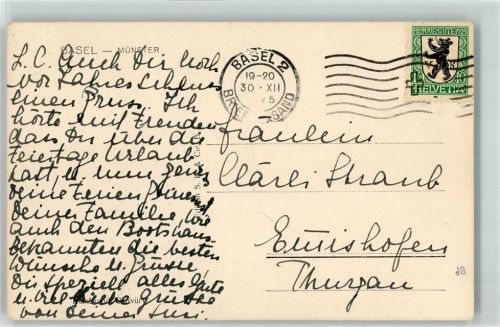 BASEL – MÜNSTER
L.C. Auch Dir noch
vor Jahresschluss
einen Gruss. Ich
hörte mit Freuden
dass Du über die
Feiertage Urlaub
hast u. nun
deine Ferien
Deiner Familie wie
auch den Bootshaus
bekannten die besten
Wünsche u. Grüsse
Dir speziell alles Gute
u. viel Grüsse
von Deiner Susi.
BASEL 2
19-20
30.XII
BRIEFVERSAND
PRO JUVENTUTE 1925
HELVETIA
Fräulein
Clärli Straub
Ermishofen
Thurgau